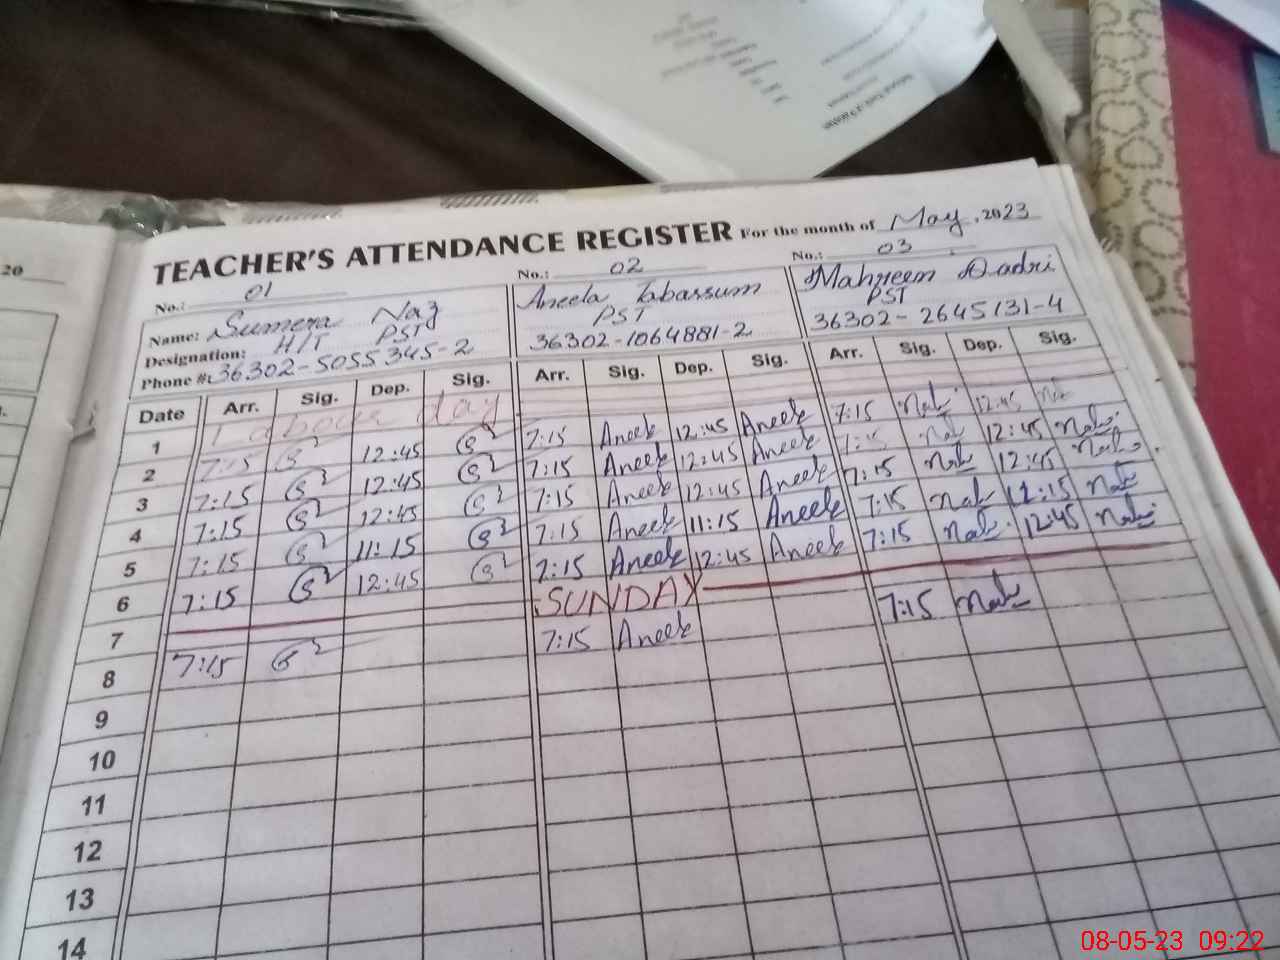 20
TEACHER'S ATTENDANCE REGISTER For the month of May, 2023
No.: 01 No.: 02 No.: 03
Name: Sumera Naz Aneela Tabassum Mahreem Qadri
Designation: H/T PST PST PST
Phone #: 36302-5055345-2 36302-1064881-2 36302-2645131-4
Date Arr. Sig. Dep. Sig. Arr. Sig. Dep. Sig. Arr. Sig. Dep. Sig.
1 Labour day
2 7:15 12:45 7:15 Aneela 12:45 Aneela 7:15 12:45
3 7:15 12:45 7:15 Aneela 12:45 Aneela 7:15 12:45
4 7:15 12:45 7:15 Aneela 12:45 Aneela 7:15 12:45
5 7:15 11:15 7:15 Aneela 11:15 Aneela 7:15 12:15
6 7:15 12:45 7:15 Aneela 12:45 Aneela 7:15 12:45
7 SUNDAY
8 7:15 7:15 Aneela 7:15
9
10
11
12
13
14
08-05-23 09:22